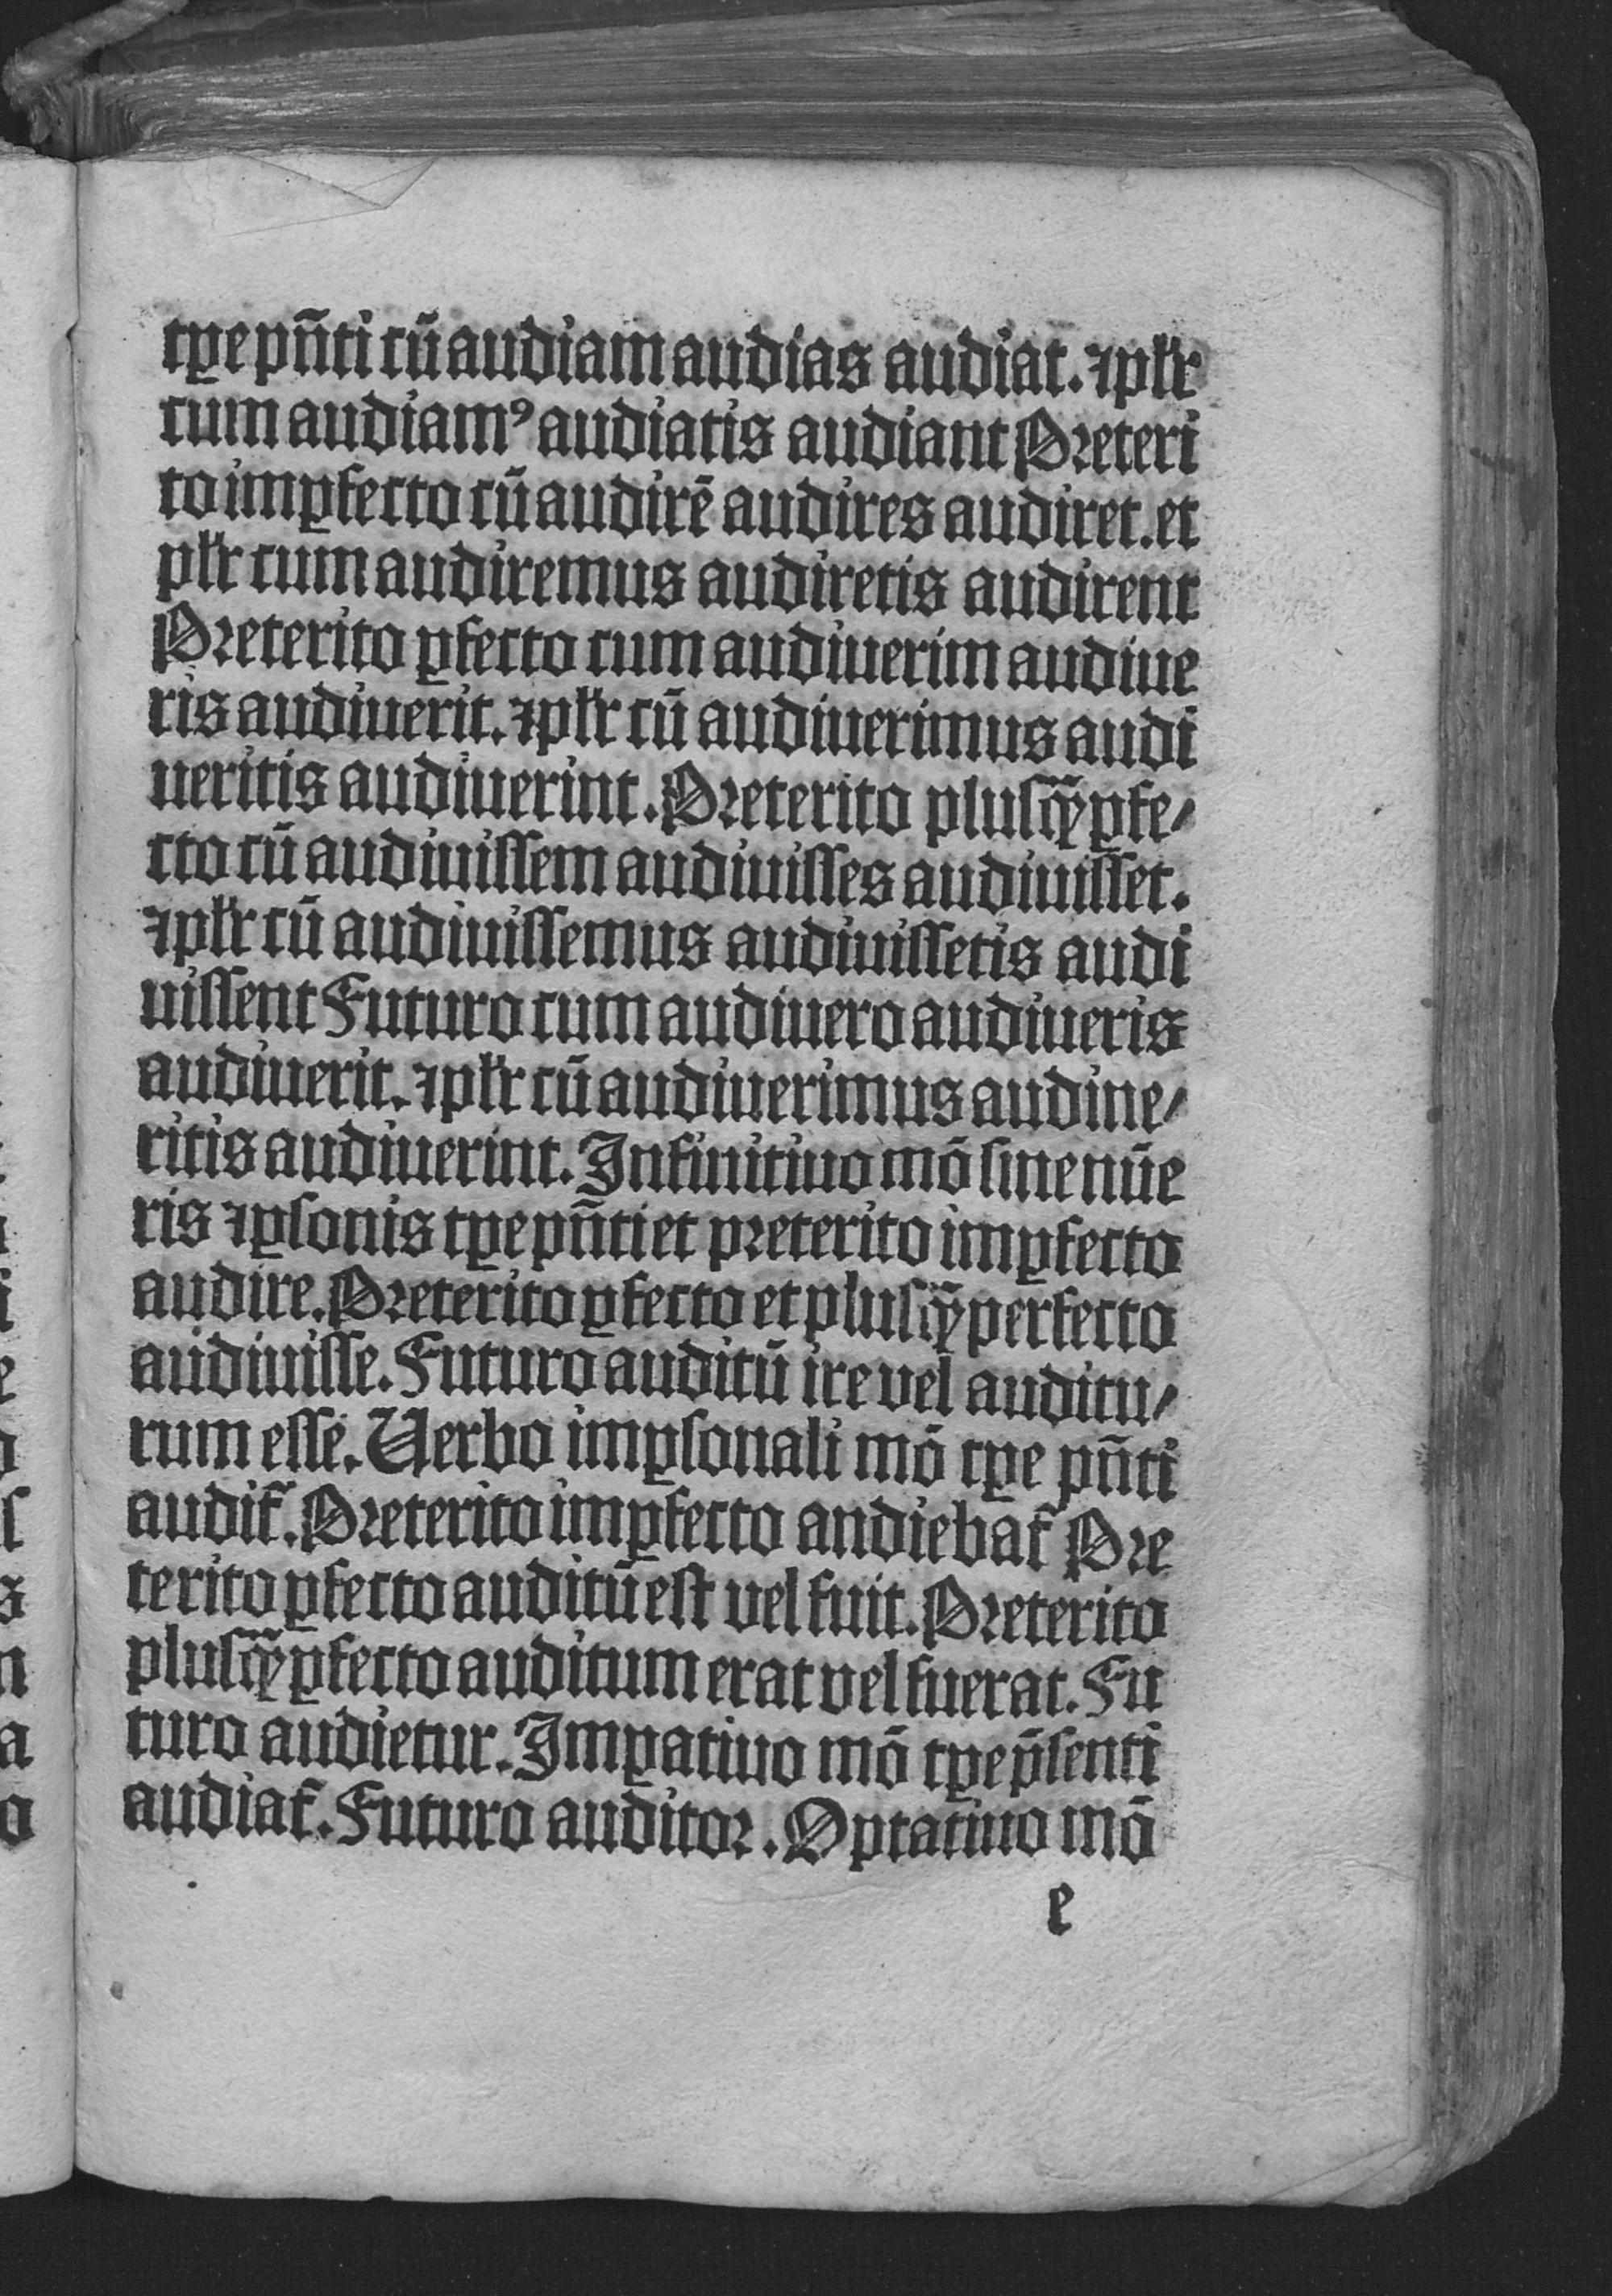 tꝑe pñti cū audiam audias audiat. ⁊ plꝛ̄
cum audiamꝰ audiatis audiant Pꝛeteri
to imꝑfecto cū audirē audires audiret. et
plꝛ̄ cum audiremus audiretis audirent
Pꝛeterito ꝑfecto cum audiuerim audiue
ris audiuerit. ⁊ plꝛ̄ cū audiuerimus audi
ueritis audiuerint. Pꝛeterito pluſꝙ̄ ꝑfe/
cto cū audiuiſſem audiuiſſes audiuiſſet.
⁊ plꝛ̄ cū audiuiſſemus audiuiſſetis audi
uiſſent Futuro cum audiuero audiueris
audiuerit. ⁊ plꝛ̄ cū audiuerimus audine/
ritis audiuerint. Infinitiuo mō ſine nūe
ris ⁊ ꝑſonis tꝑe pñti et pꝛeterito imꝑfecto
audire. Pꝛeterito ꝑfecto et pluſꝙ̄ perfecto
audiuiſſe. Futuro auditū ire vel auditu/
rum eſſe. Uerbo imꝑſonali mō tꝑe pñti
audit̄. Pꝛeterito imꝑfecto andiebat̄ Pꝛe
terito ꝑfecto auditū eſt vel fuit. Pꝛeterito
pluſꝙ̄ ꝑfecto auditum erat vel fuerat. Fu
turo audietur. Imꝑatiuo mō tꝑe p̄ſenti
audiat̄. Futuro auditoꝛ. Optatiuo mō
e